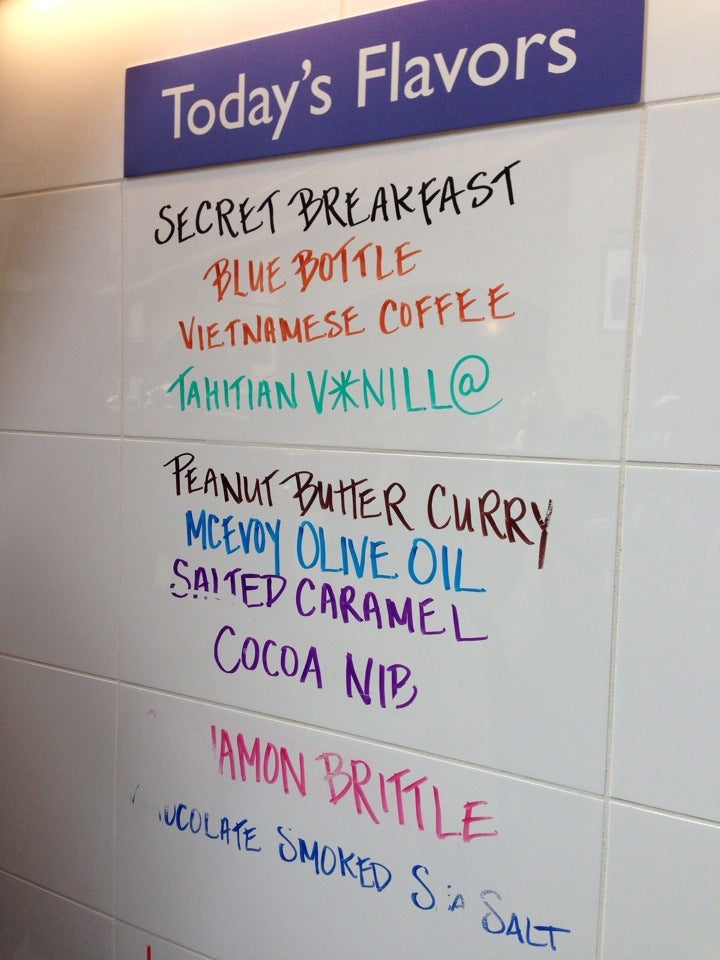 Today's Flavors
SECRET BREAKFAST
BLUE BOTTLE
VIETNAMESE COFFEE
TAHITIAN V*NILL@
PEANUT BUTTER CURRY
MCEVOY OLIVE OIL
SALTED CARAMEL
COCOA NIB
AMON BRITTLE
OCOLATE SMOKED SEA SALT